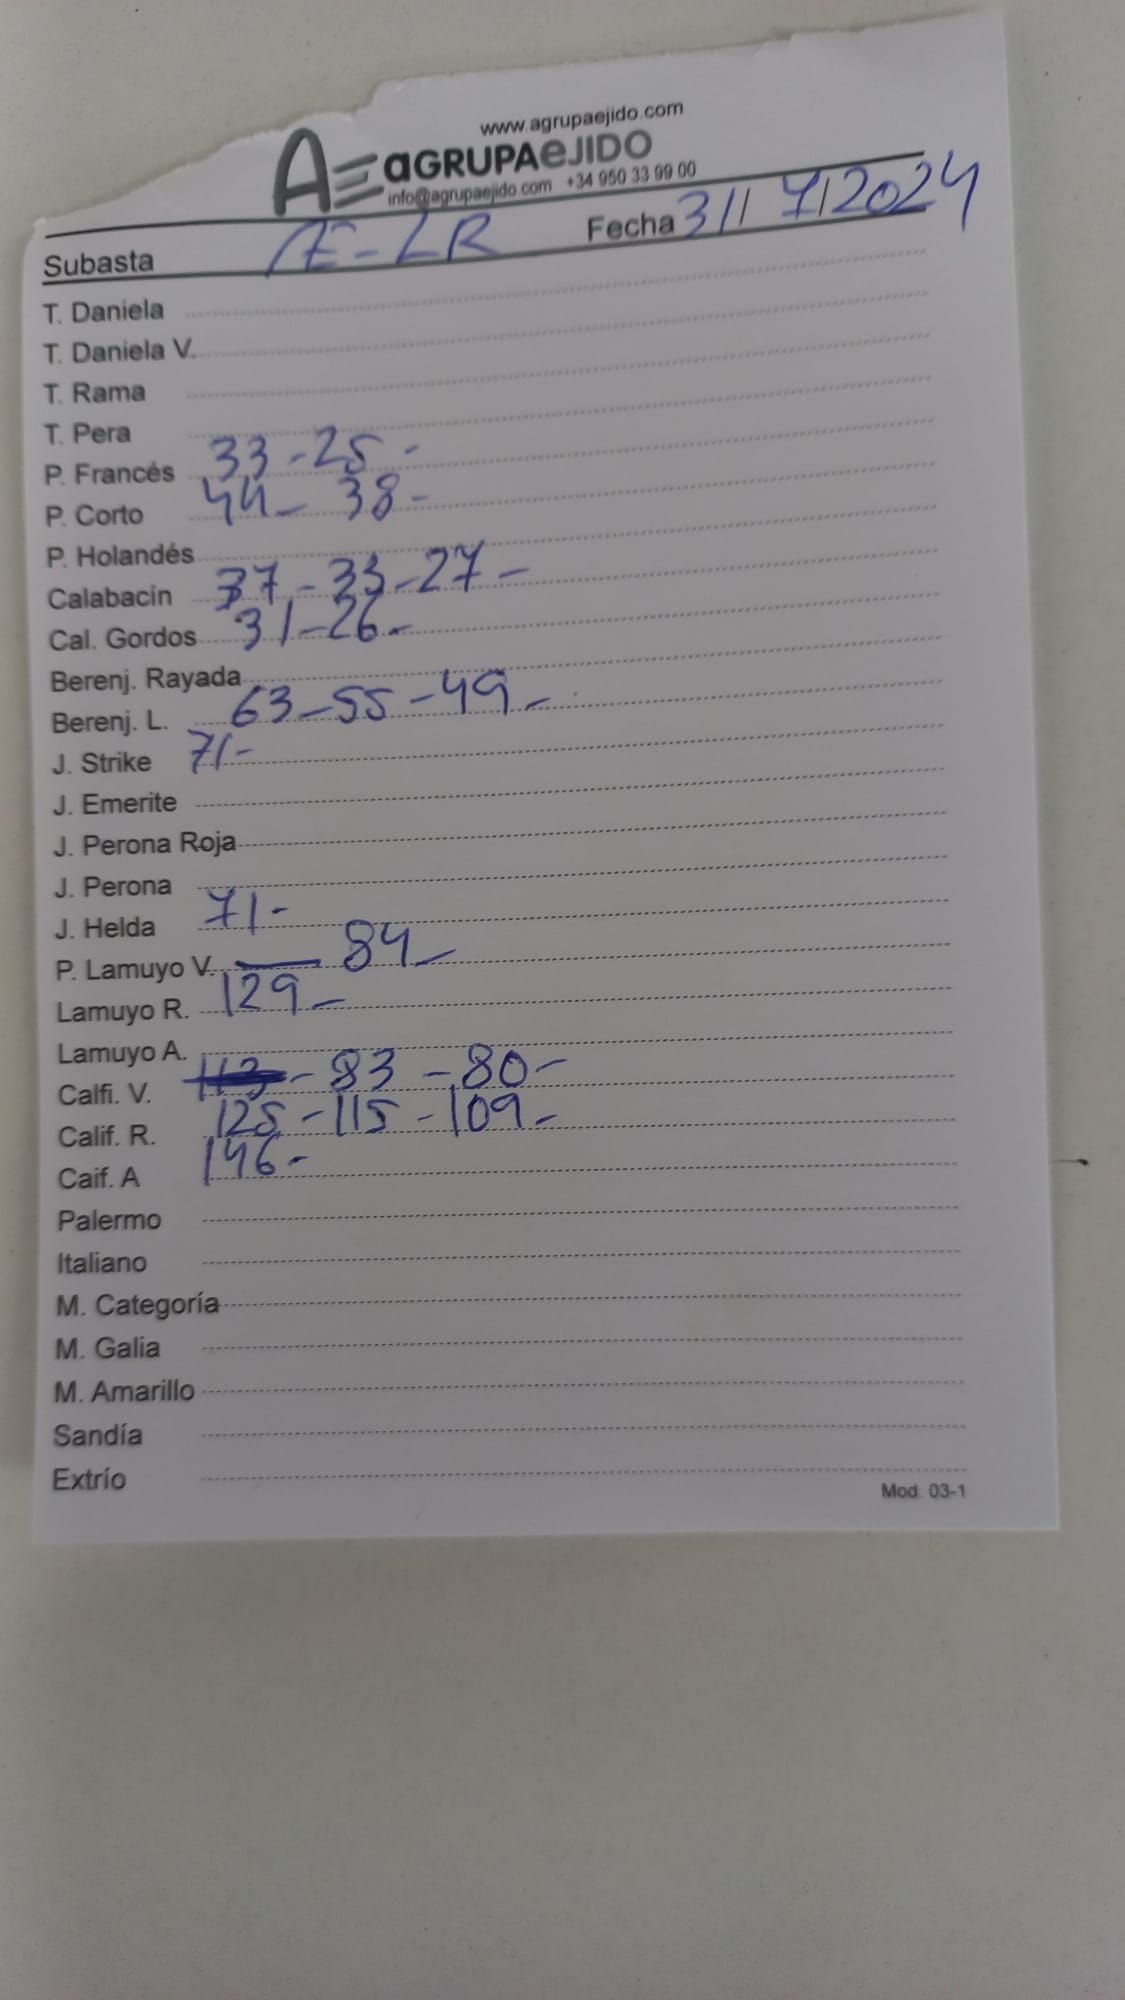 www.agrupaejido.com
AE aGRUPAeJIDO
info@agrupaejido.com +34 950 33 99 00
Subasta AE-LR Fecha 31/7/2024
T. Daniela
T. Daniela V.
T. Rama
T. Pera
P. Francés 33-25-
P. Corto 44-38-
P. Holandés
Calabacín 37-33-27-
Cal. Gordos 31-26-
Berenj. Rayada
Berenj. L. 63-55-49-
J. Strike 71-
J. Emerite
J. Perona Roja
J. Perona
J. Helda 71-
P. Lamuyo V. — 84-
Lamuyo R. 129-
Lamuyo A.
Calfi. V. 113-83-80-
Calif. R. 125-115-109-
Caif. A 146-
Palermo
Italiano
M. Categoría
M. Galia
M. Amarillo
Sandía
Extrío
Mod. 03-1